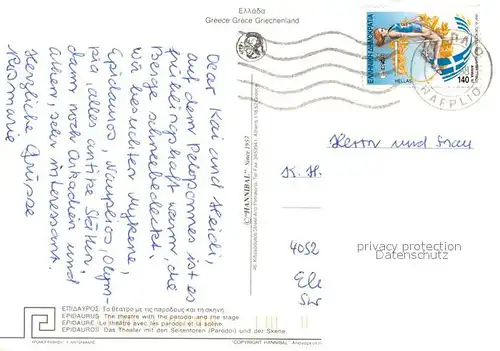 Ελλάδα
Greece Grece Griechenland
ΕΛΛΗΝΙΚΗ ΔΗΜΟΚΡΑΤΙΑ
HELLAS
140
ΝΑΥΠΛΙΟ
NAFPLIO
Dear Kai und Heidi,
auf dem Peloponnes ist es
frühlingshaft warm, die
Berge schneebedeckt.
Wir besuchten Mykene,
Epidauros, Nauplios, Olym-
pia, alles antike Stätten,
dann noch Arkadien und
Athen, sehr interessant.
Herzliche Grüsse
Rosmarie
©"HANNIBAL" Since 1957
Herrn und Frau
K. H.
4052
privacy protection
Datenschutz
ΕΠΙΔΑΥΡΟΣ: Το θέατρο με τις παρόδους και τη σκηνή.
EPIDAURUS: The theatre with the parodoi and the stage
EPIDAURE: Le théâtre avec les parodoi et la scène.
EPIDAUROS: Das Theater mit den Seitentoren (Parodoi) und der Skene.
"COPYRIGHT HANNIBAL"